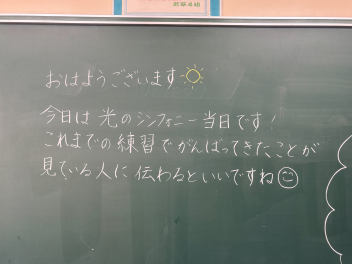 おはようございます
今日は光のシンフォニー当日です!
これまでの練習でがんばってきたことが
見ている人に伝わるといいですね